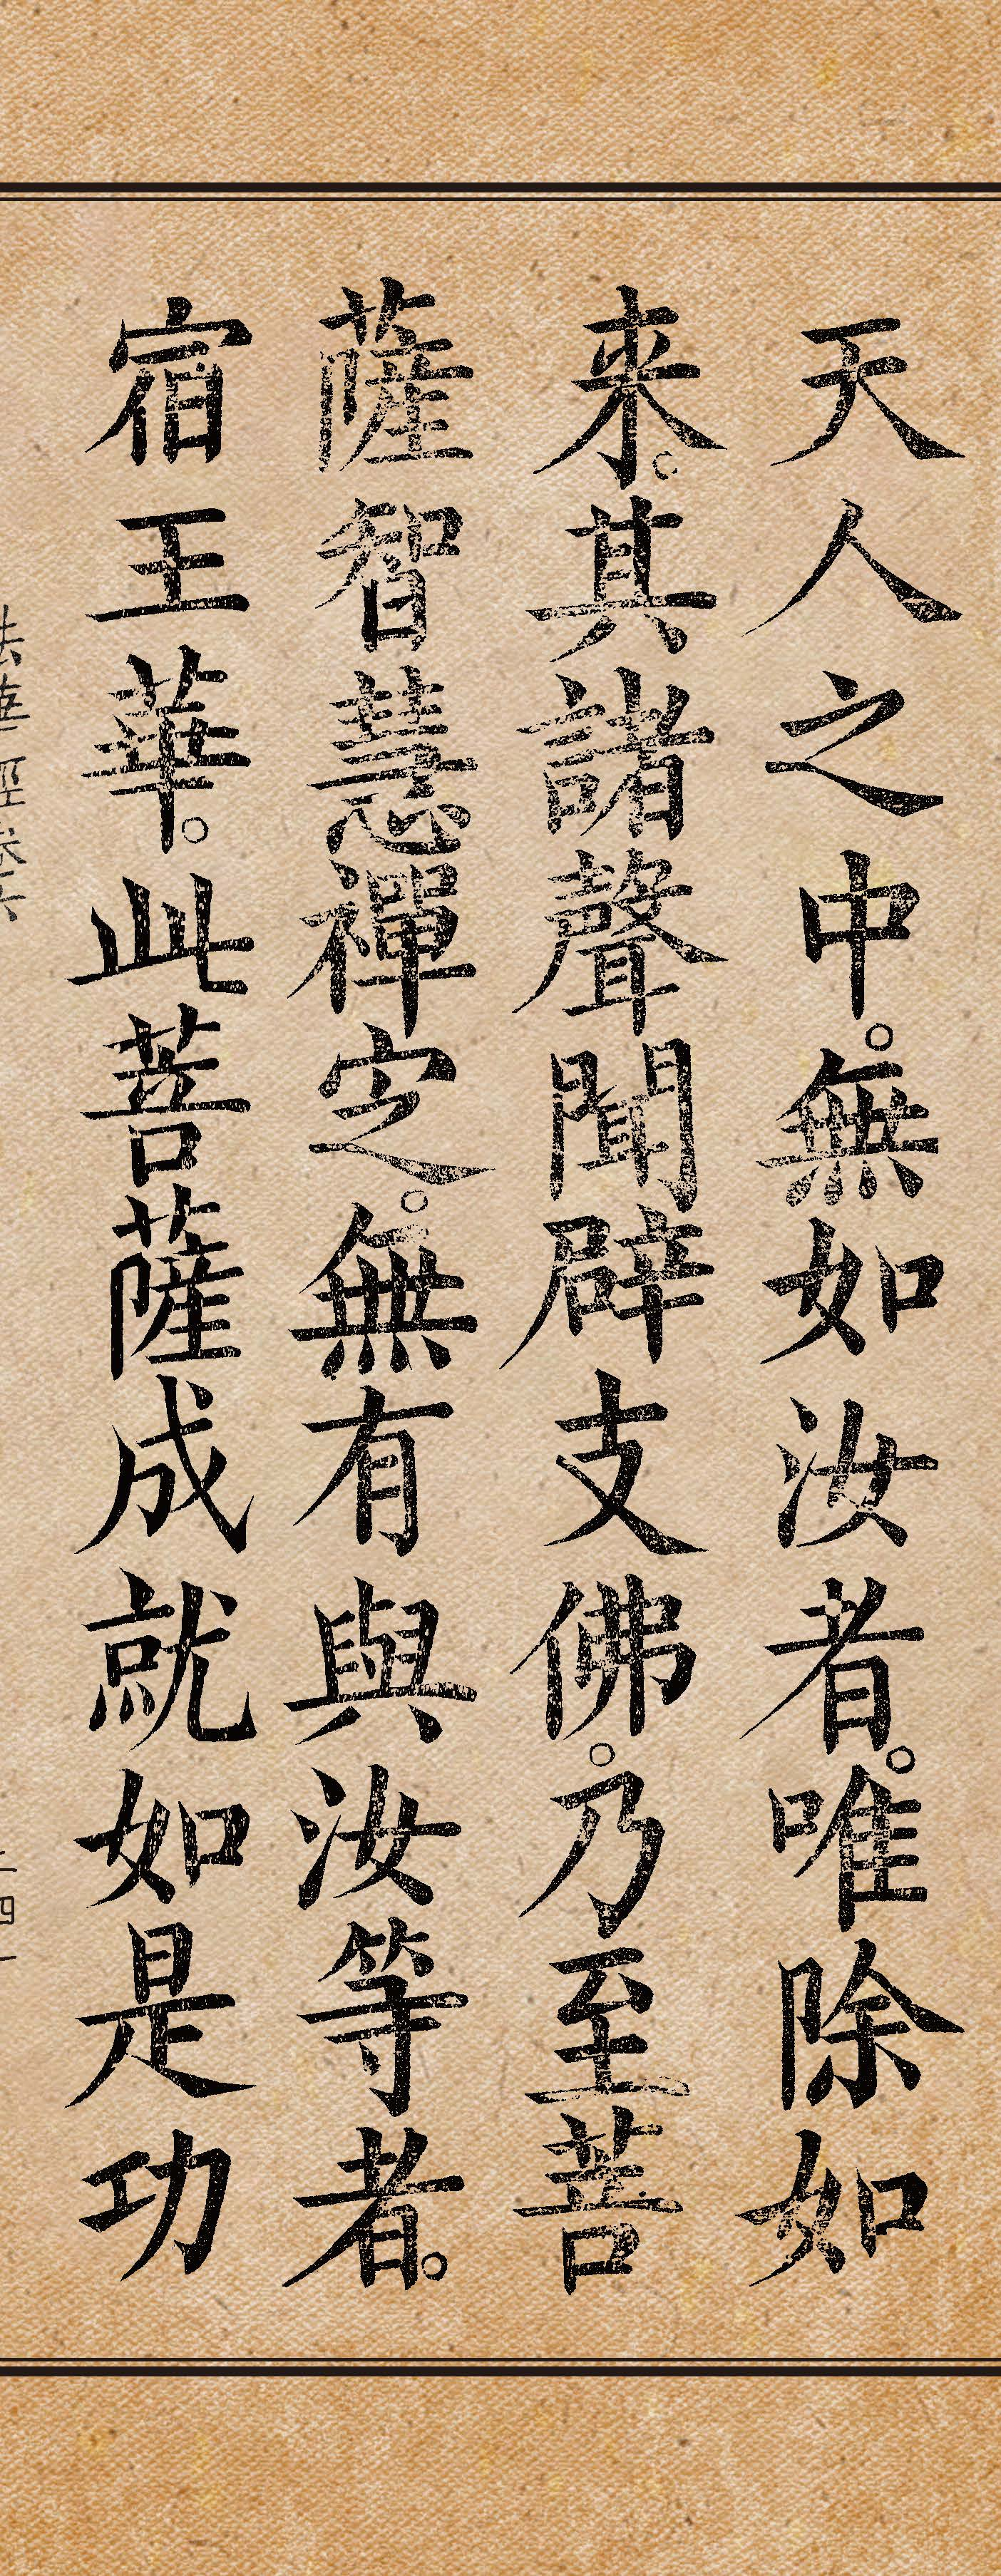 天人之中。無如汝者。唯除如
来。其諸聲聞辟支佛。乃至菩
薩智慧禪定。無有與汝等者。
宿王華。此菩薩成就如是功
法華經卷六